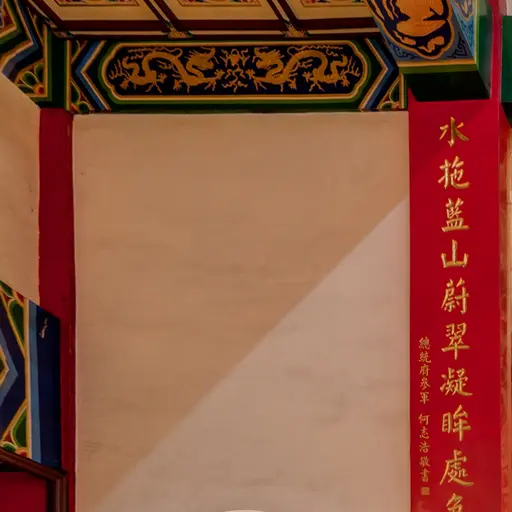 水拖藍山蔚翠凝眸處
總統府參軍 何志浩敬書